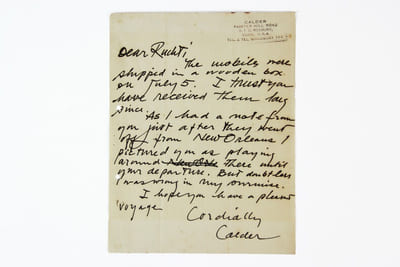 CALDER
PAINTER HILL ROAD
R.F.D. ROXBURY
CONN. U.S.A.
Dear Ruchti,
The mobiles were
shipped in a wooden box
on July 5. I trust you
have received them long
since.
As I had a note from
you just after they went
off from New Orleans I
pictured you as playing
around there until
your departure. But doubtless
I was wrong in my surmise.
I hope you have a pleasant
voyage
Cordially
Calder